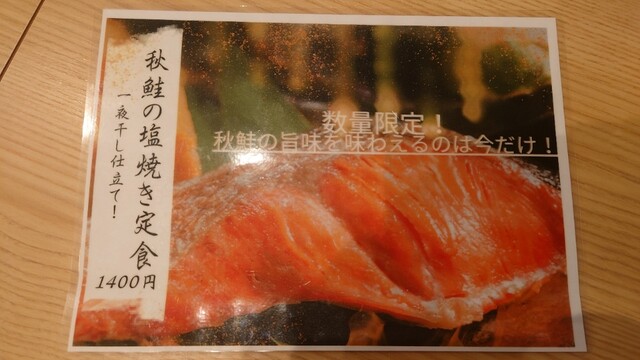 秋鮭の塩焼き定食
一夜干し仕立て!
1400円
数量限定！
秋鮭の旨味を味わえるのは今だけ！